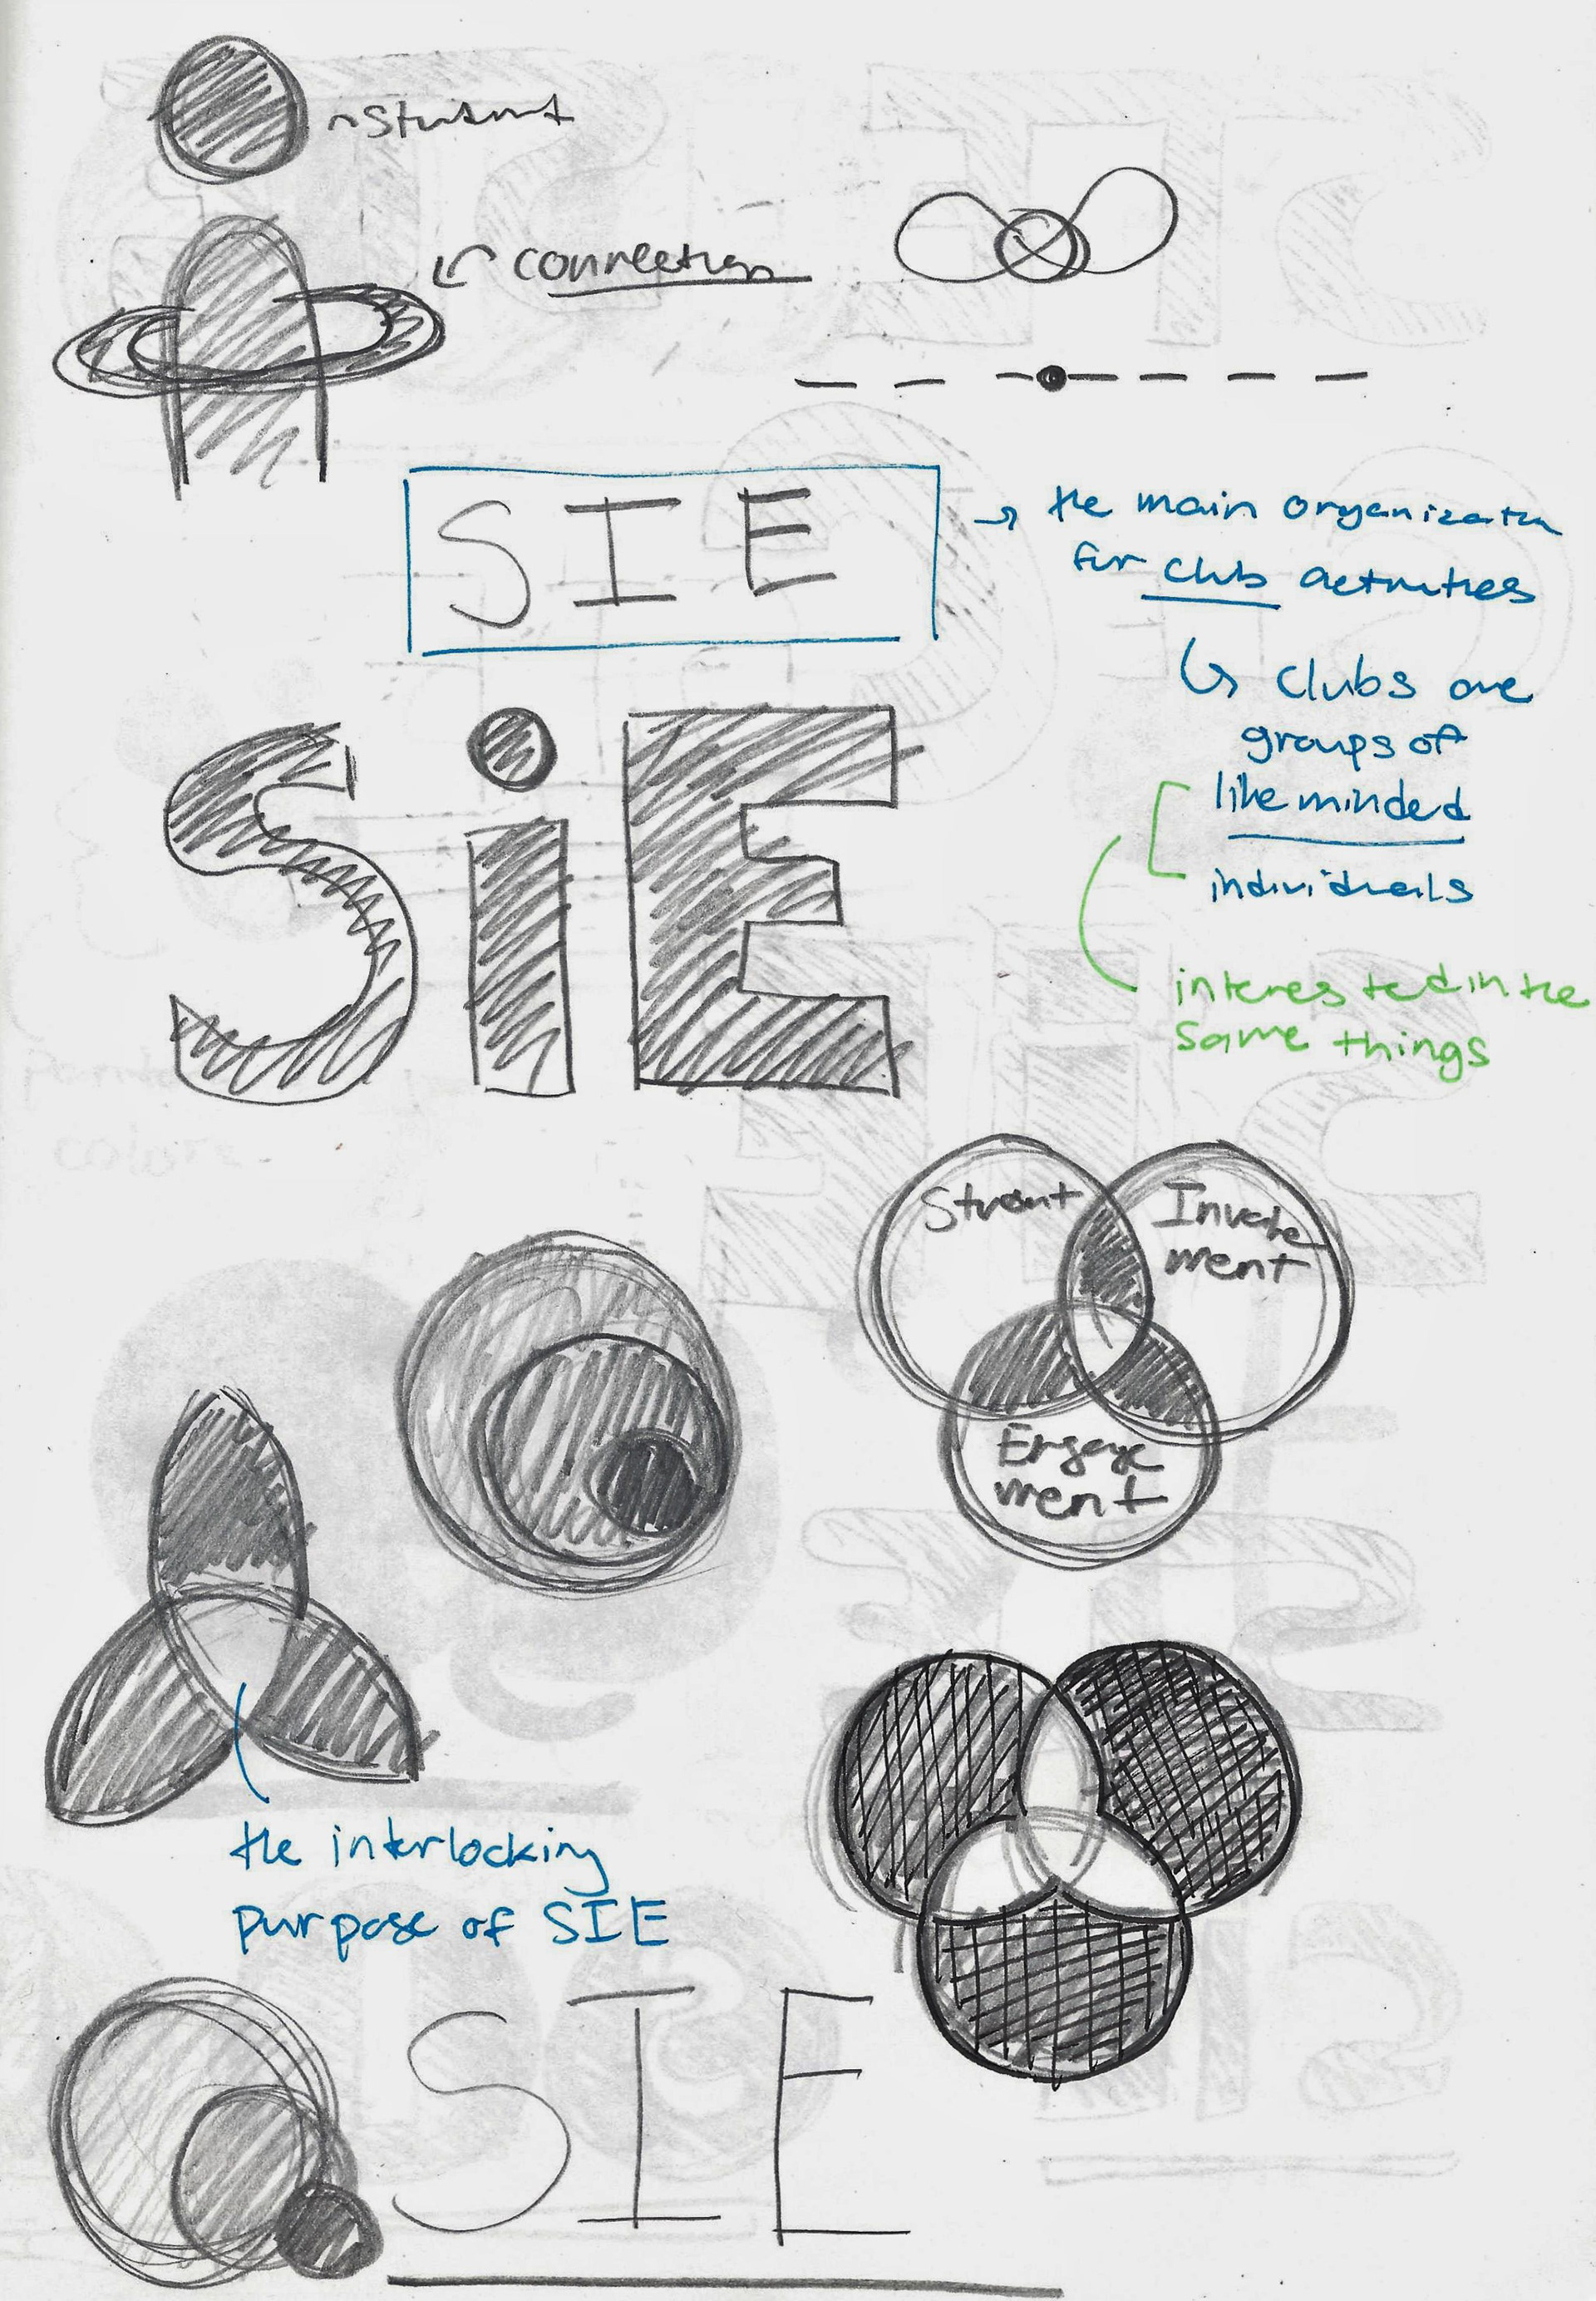 student
connection
SIE
the main organization
for club activities
clubs are
groups of
like minded
individuals
interested in the
same things
SiE
Student
Involve
ment
Engage
ment
the interlocking
purpose of SIE
SIE